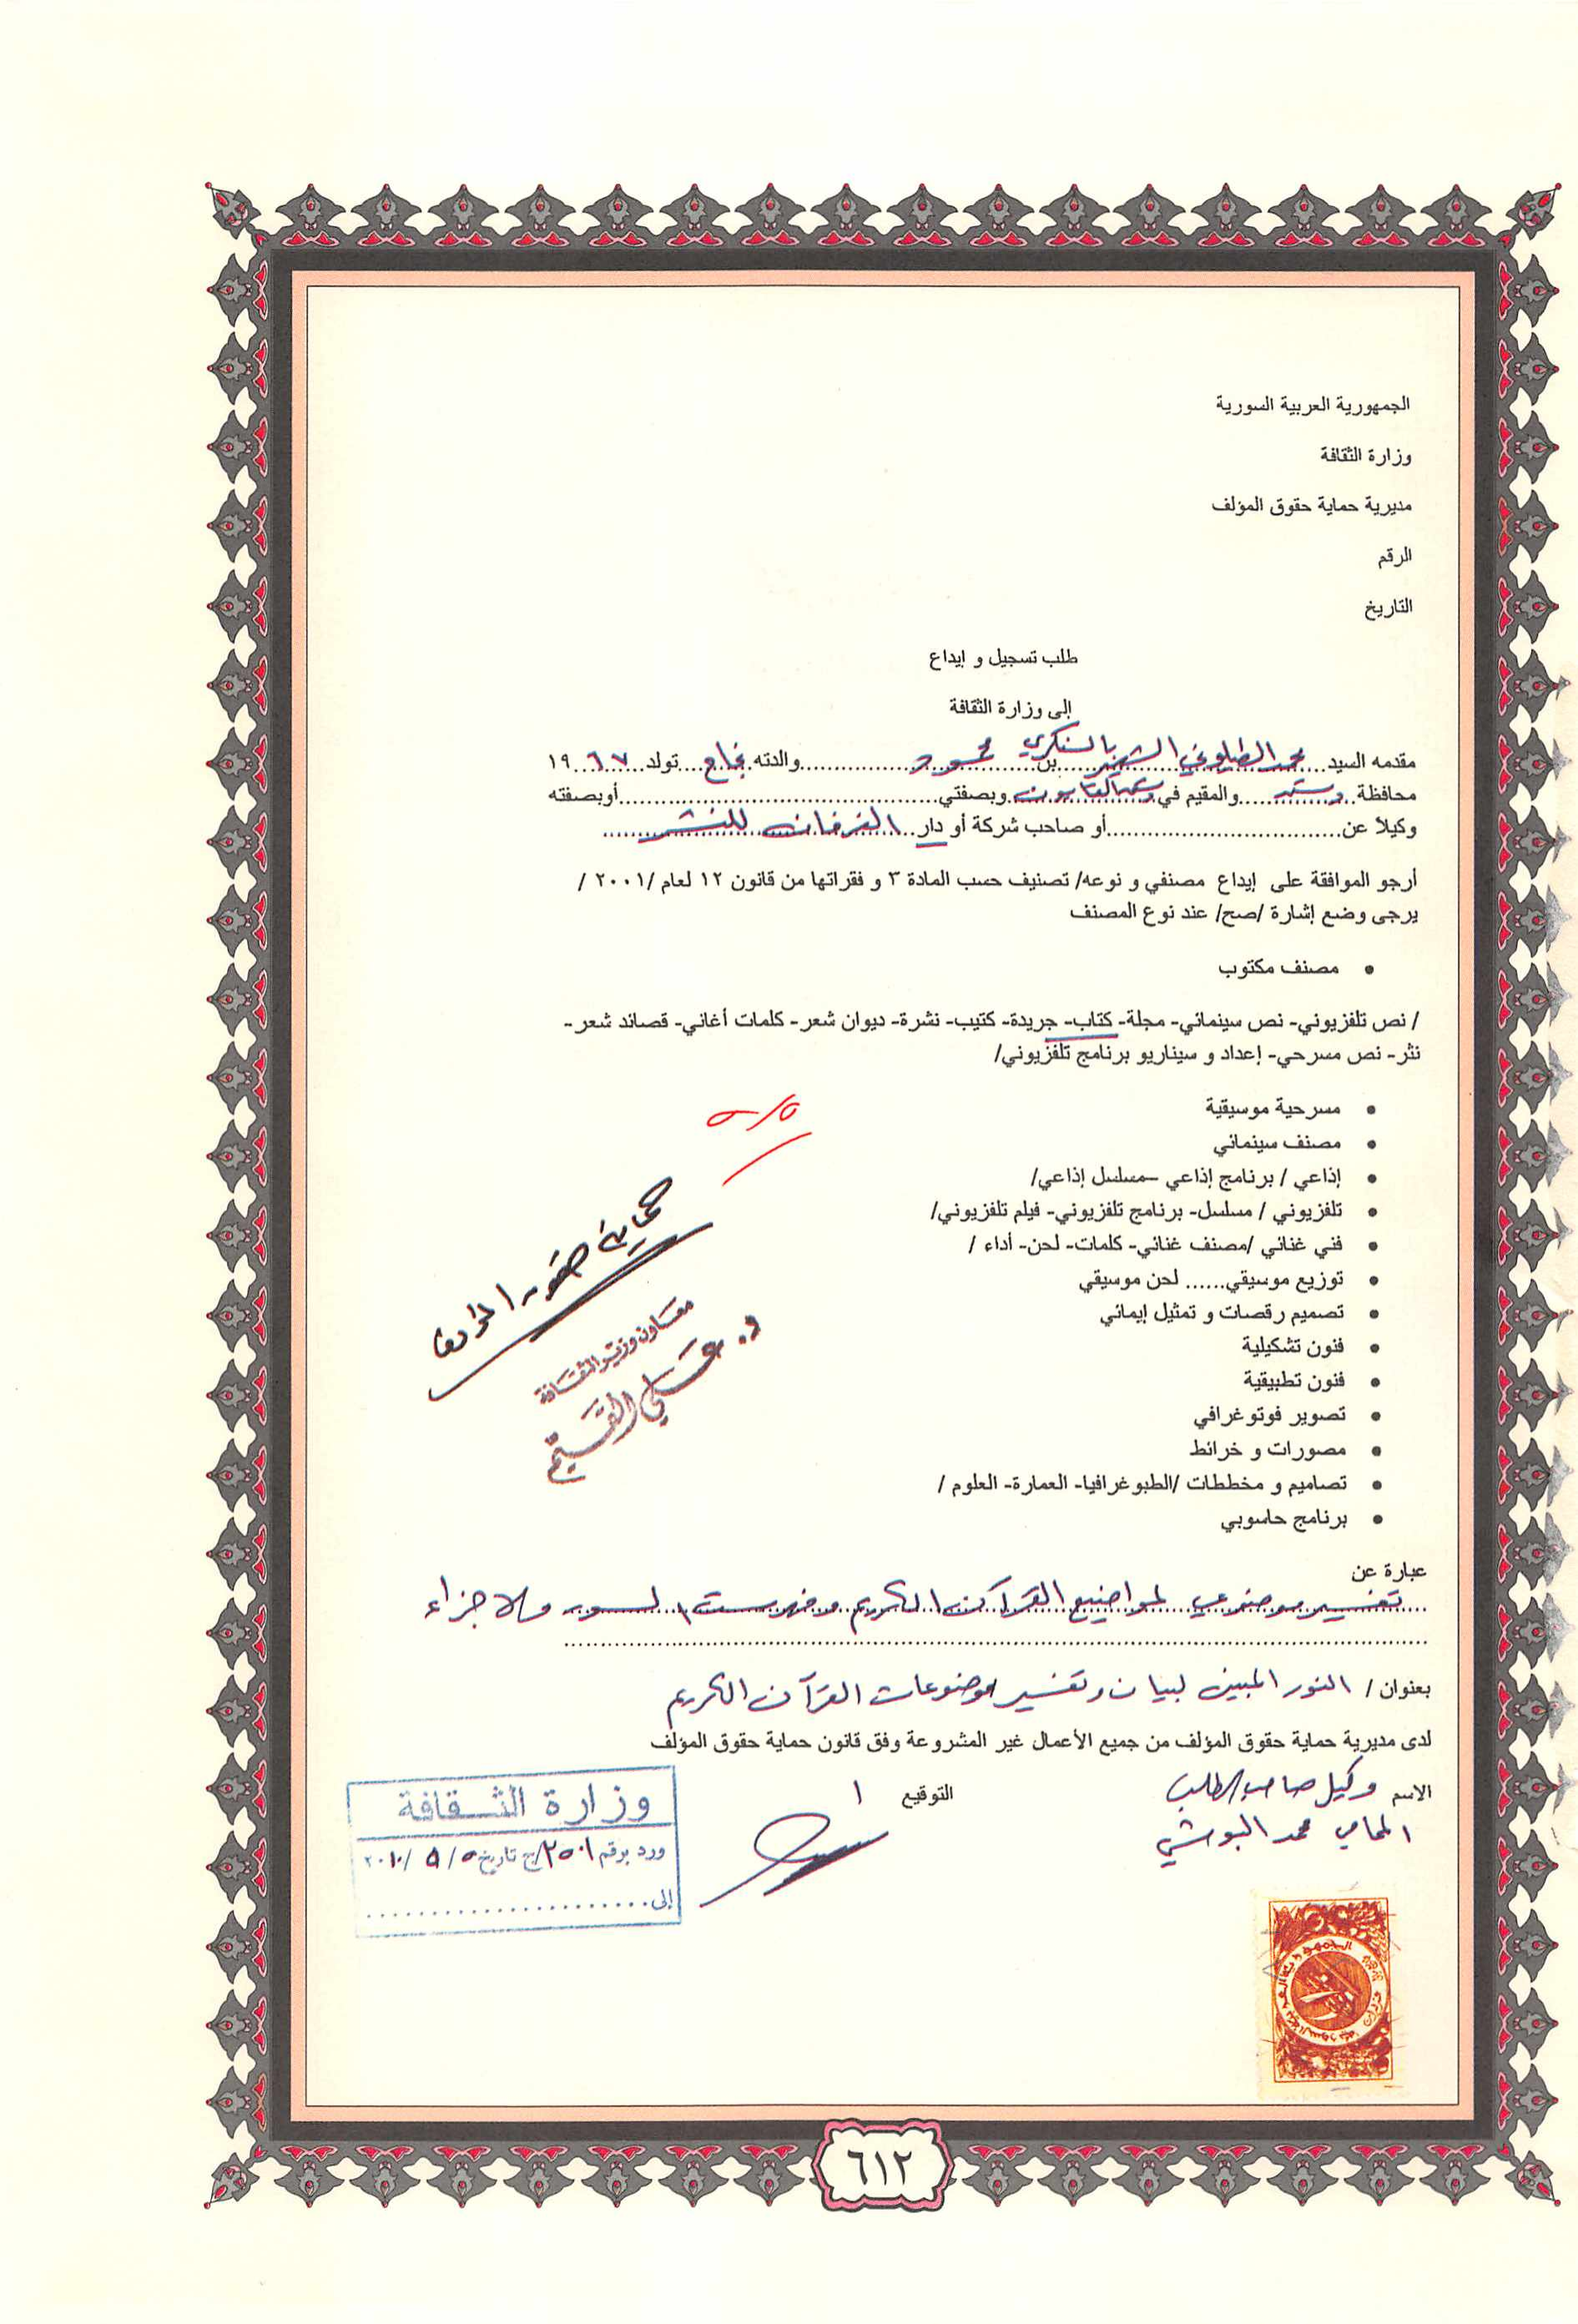 الجمهورية العربية السورية
وزارة الثقافة
مديرية حماية حقوق المؤلف
الرقم
التاريخ
طلب تسجيل و إيداع
إلى وزارة الثقافة
مقدمه السيد محمد الشهير بالسنكري بن محمود والدته نجاح تولد ١٩٦٧
محافظة دمشق والمقيم في دمشق القابون وبصفتي أوبصفته
وكيلاً عن أو صاحب شركة أو دار الفرقان للنشر
أرجو الموافقة على إيداع مصنفي و نوعه/ تصنيف حسب المادة ٣ و فقراتها من قانون ١٢ لعام /٢٠٠١ /
يرجى وضع إشارة /صح/ عند نوع المصنف
• مصنف مكتوب
/ نص تلفزيوني- نص سينمائي- مجلة- كتاب- جريدة- كتيب- نشرة- ديوان شعر- كلمات أغاني- قصائد شعر-
نثر- نص مسرحي- إعداد و سيناريو برنامج تلفزيوني/
• مسرحية موسيقية
• مصنف سينمائي
• إذاعي / برنامج إذاعي –مسلسل إذاعي/
• تلفزيوني / مسلسل- برنامج تلفزيوني- فيلم تلفزيوني/
• فني غنائي /مصنف غنائي- كلمات- لحن- أداء /
• توزيع موسيقي...... لحن موسيقي
• تصميم رقصات و تمثيل إيمائي
• فنون تشكيلية
• فنون تطبيقية
• تصوير فوتوغرافي
• مصورات و خرائط
• تصاميم و مخططات /الطبوغرافيا- العمارة- العلوم /
• برنامج حاسوبي
٥/٥
حماية حقوق المؤلف
معاون وزير الثقافة
د. علي القيّم
عبارة عن
تفسير موضوعي لمواضيع القرآن الكريم وفهرست لسور والاجزاء
بعنوان / النور المبين لبيان وتفسير موضوعات القرآن الكريم
لدى مديرية حماية حقوق المؤلف من جميع الأعمال غير المشروعة وفق قانون حماية حقوق المؤلف
الاسم وكيل صاحب الطلب التوقيع
المحامي محمد البوشي
وزارة الثقافة
ورد برقم ٢٥٠١/ج تاريخ ٥/٥/٢٠١٠
إلى
الجمهورية العربية السورية
٦١٢